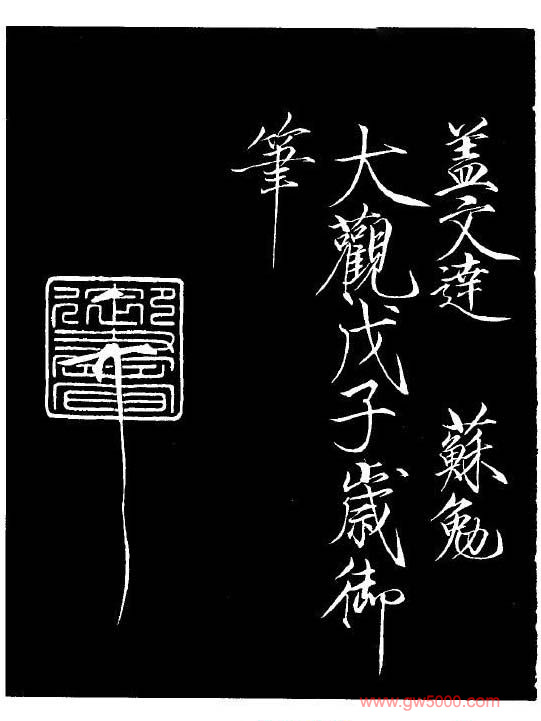 盖文達 蘇勉
大觀戊子歲御
筆
www.gw5000.com